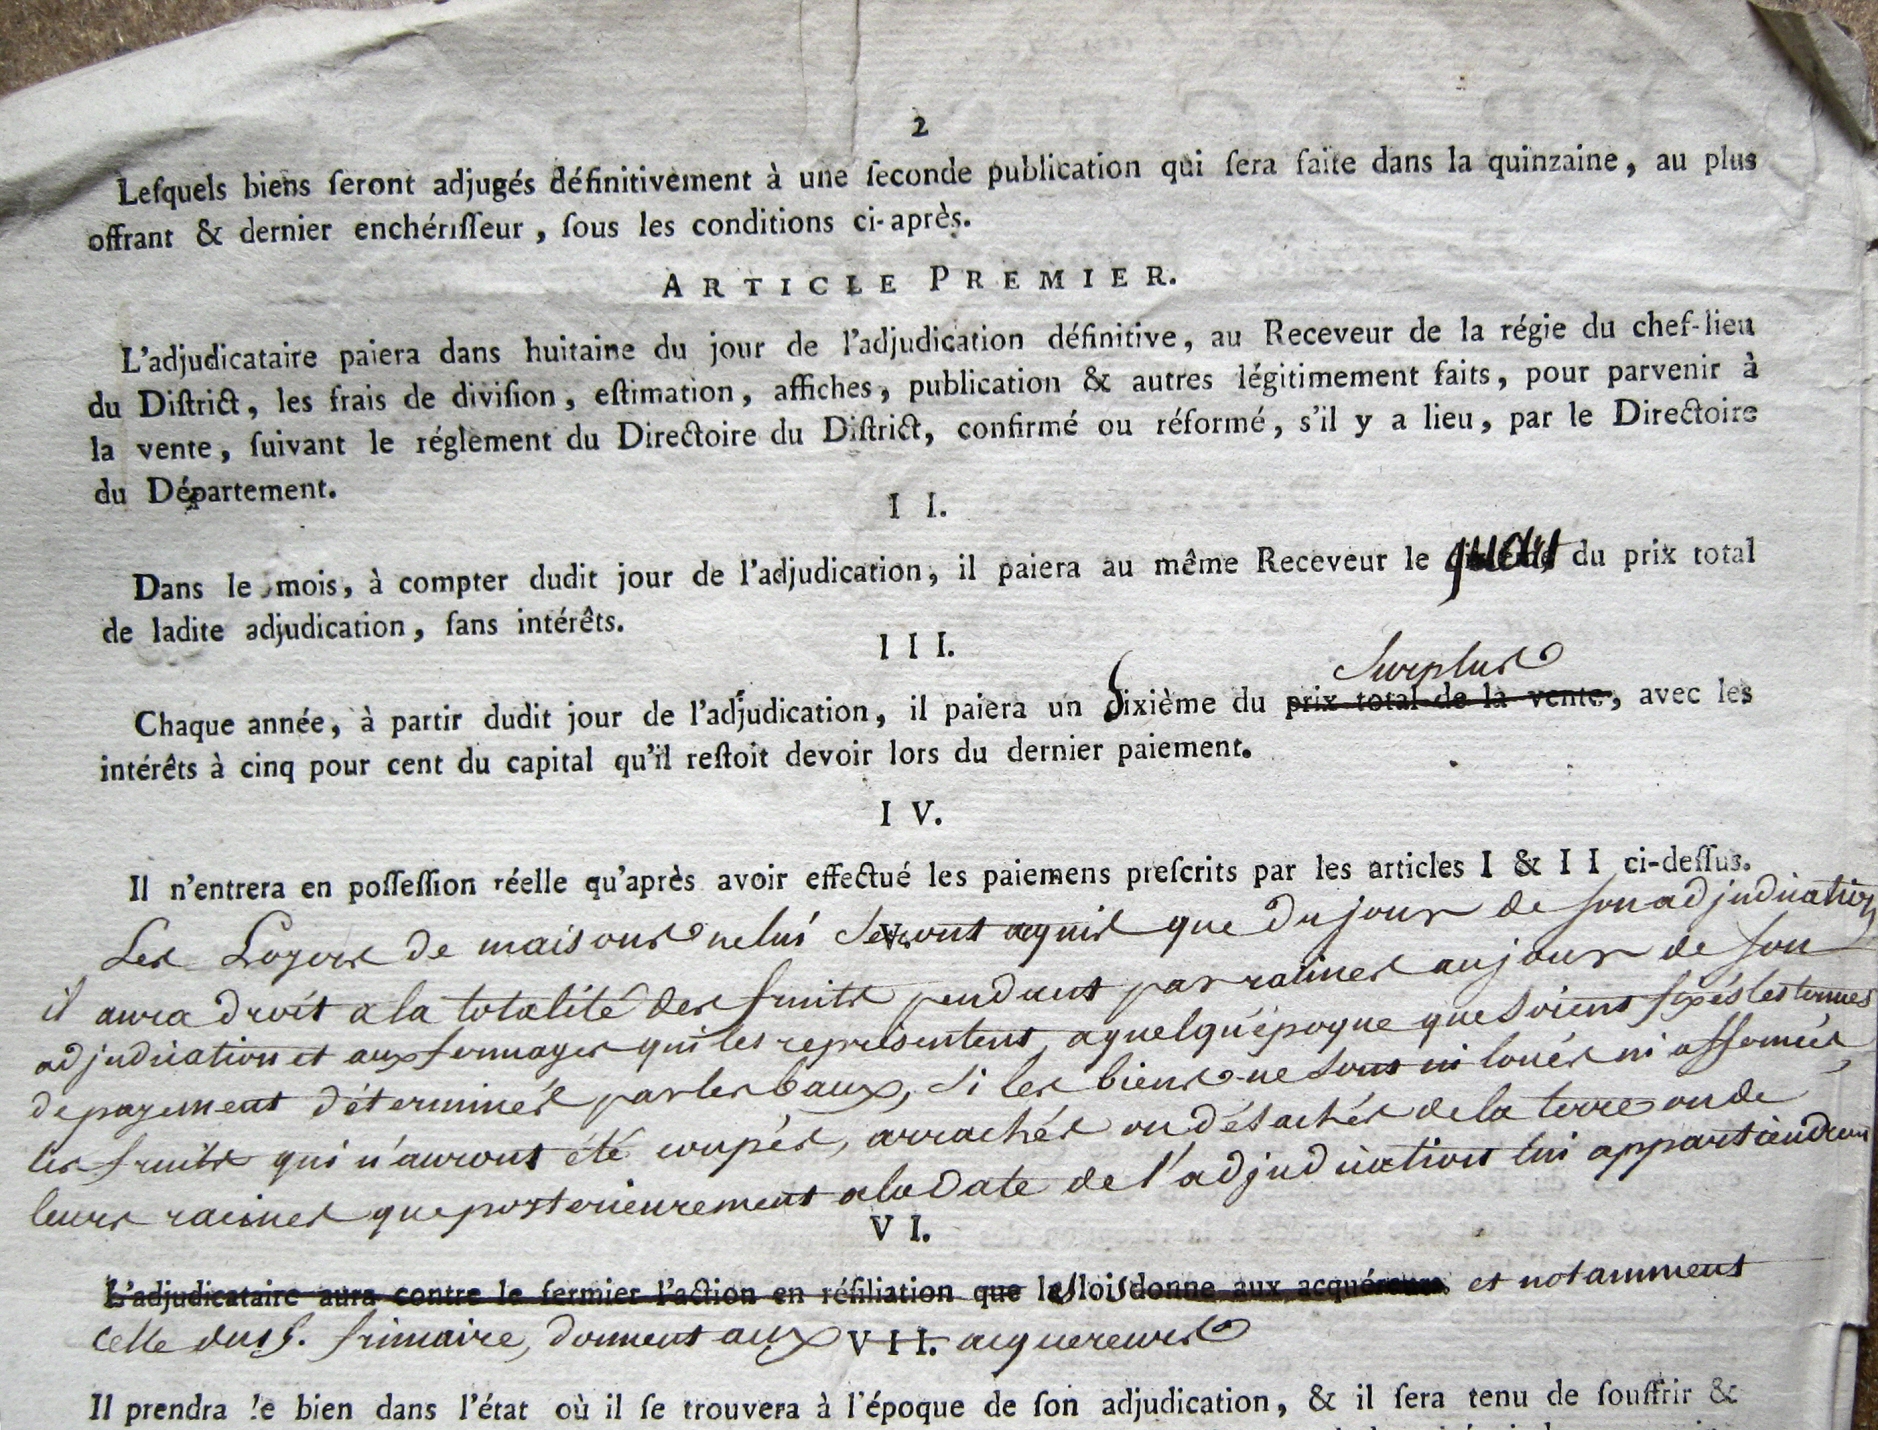 2
Leſquels biens ſeront adjugés définitivement à une ſeconde publication qui ſera faite dans la quinzaine, au plus
offrant & dernier enchériſſeur, ſous les conditions ci-après.
ARTICLE PREMIER.
L'adjudicataire paiera dans huitaine du jour de l'adjudication définitive, au Receveur de la régie du chef-lieu
du Diſtrict, les frais de diviſion, eſtimation, affiches, publication & autres légitimement faits, pour parvenir à
la vente, ſuivant le réglement du Directoire du Diſtrict, confirmé ou réformé, s'il y a lieu, par le Directoire
du Département.
II.
Dans le mois, à compter dudit jour de l'adjudication, il paiera au même Receveur le quart du prix total
de ladite adjudication, ſans intérêts.
III.
Surplus
Chaque année, à partir dudit jour de l'adjudication, il paiera un Sixième du prix total de la vente, avec les
intérêts à cinq pour cent du capital qu'il reſtoit devoir lors du dernier paiement.
IV.
Il n'entrera en poſſeſſion réelle qu'après avoir effectué les paiemens preſcrits par les articles I & II ci-deſſus.
Les Loyers de maisons ne lui Seront acquis que du jour de son adjudication
il aura droit a la totalité des fruits pendants par racines au jour de son
adjudication et aux fermages qui les représentent, a quelqu'époque que Soient fixés les termes
de payement déterminés par les baux, Si les biens ne Sont ni loués ni affermés,
les fruits qui n'auront été coupés, arrachés ou détachés de la terre ou de
leurs racines que postérieurement a la Date de l'adjudication lui appartiendront
VI.
L'adjudicataire aura contre le fermier l'action en réſiliation que les lois donne aux acquéreurs. et notamment
celle du 15. frimaire, donnent aux VII. acquereurs
Il prendra le bien dans l'état où il ſe trouvera à l'époque de ſon adjudication, & il ſera tenu de ſouffrir &